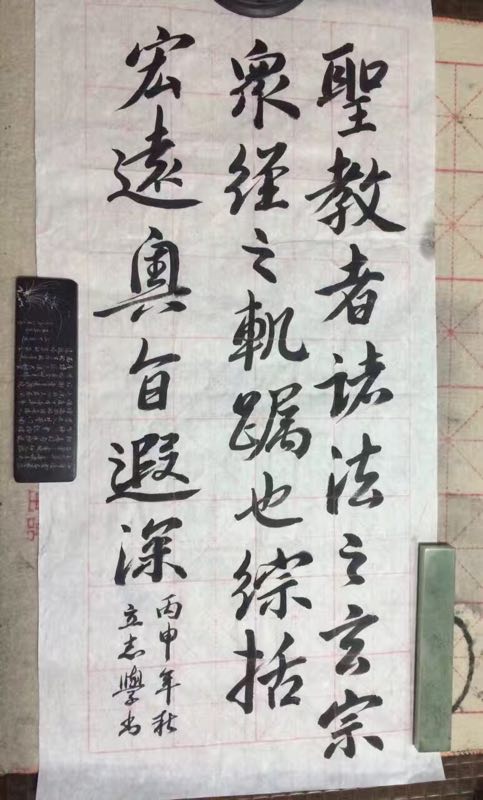 聖教者諸法之玄宗
衆經之軌躅也綜括
宏遠奧旨遐深
丙申年秋
立志學書